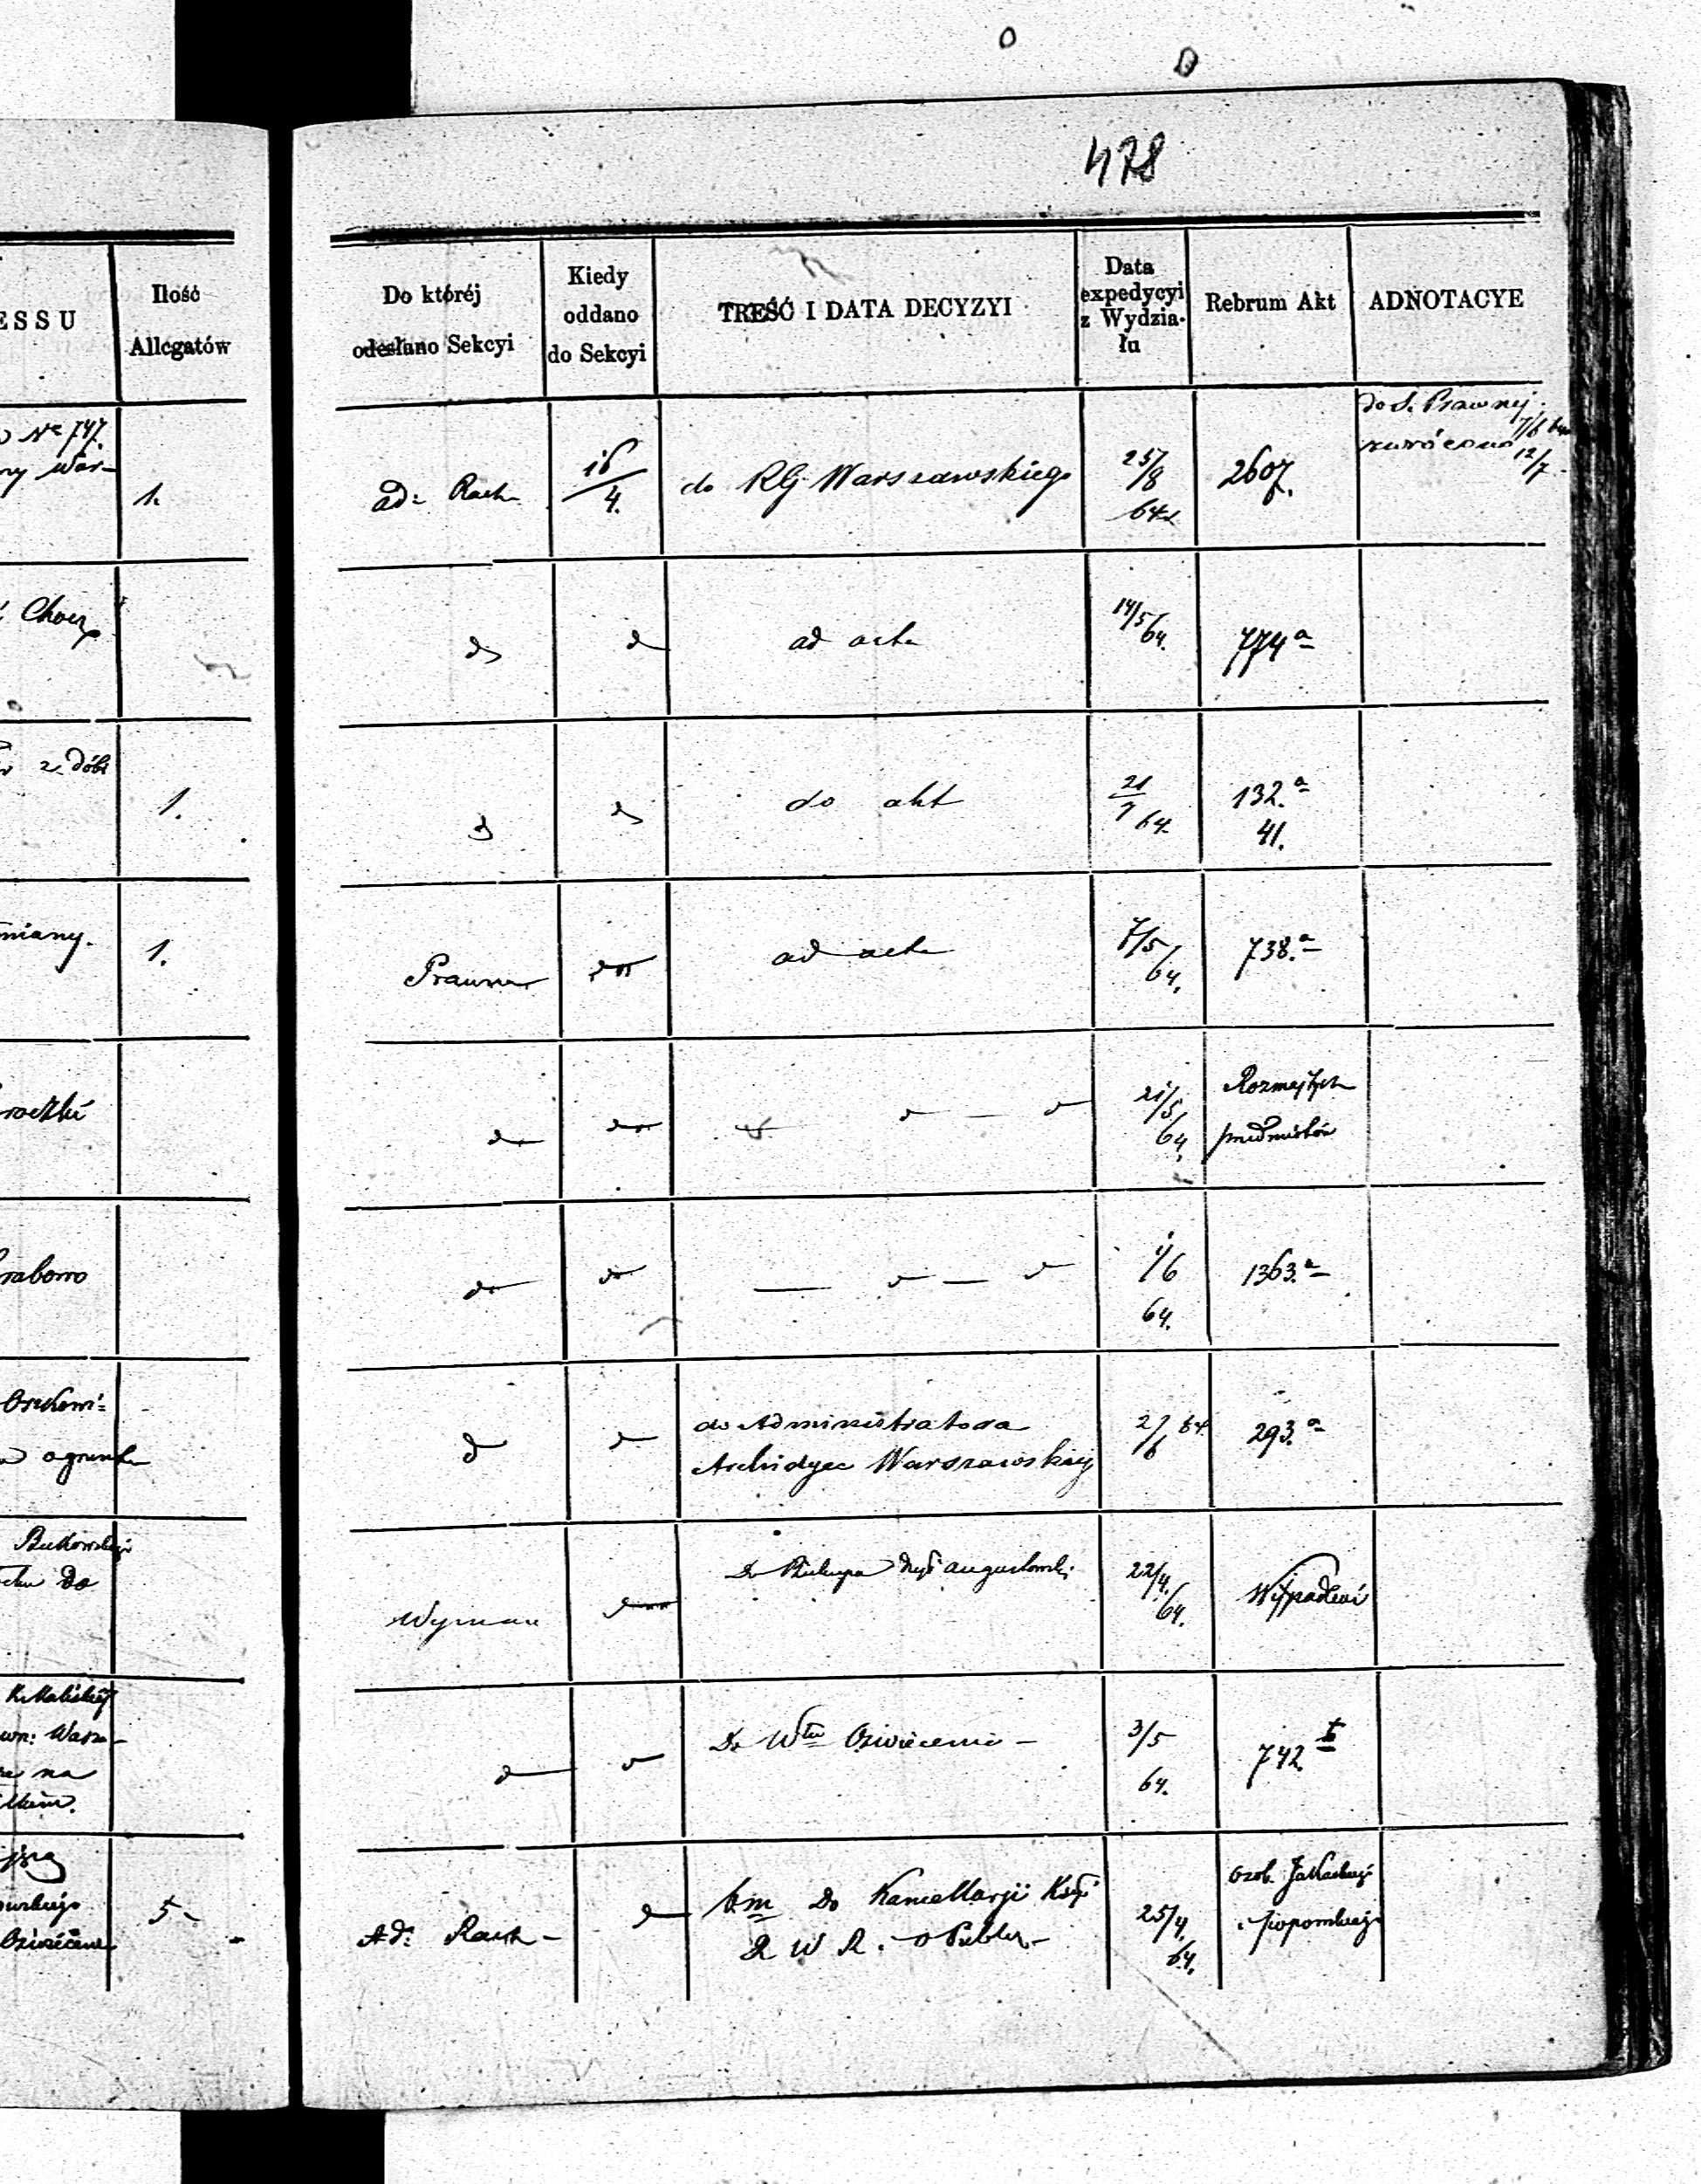 478
ESSU
Ilość
Allegatów
Do któréj
odesłano Sekcyi
Kiedy
oddano
do Sekcyi
TREŚĆ I DATA DECYZYI
Data
expedycyi
z Wydzia-
łu
Rebrum Akt
ADNOTACYE
No 747.
ny War-
1.
ad: Rach
16/4.
do RG. Warszawskiego
25/8
64
2607.
do S. Prawnej
7/6 64
zwrócono
12/7
Chocz
d
d
ad acta
14/5 64.
774 a
z dóbr
1.
d
d
do akt
21/7 64.
132. a
41.
miany.
1.
Prawna
d
ad acta
7/5 64.
738. a
d
d
d — d
21/5 64.
Rozmajtych
przedmiotów
rabowo
d
d
— d — d
1/6
64.
1363. a
d
d
do Administratora
Archidyec Warszawskiej
2/6 64
293. a
Bukowskiego
do
Wyznań
d
Do Biskupa Augustowski
22/4. 64.
Wypadków
wa: Warsz-
na
d
d
Do Włu Oświecenia —
3/5
64.
742.
5 -
Ad: Rach —
d
Do Kancellaryi
25/4. 64.
osob.